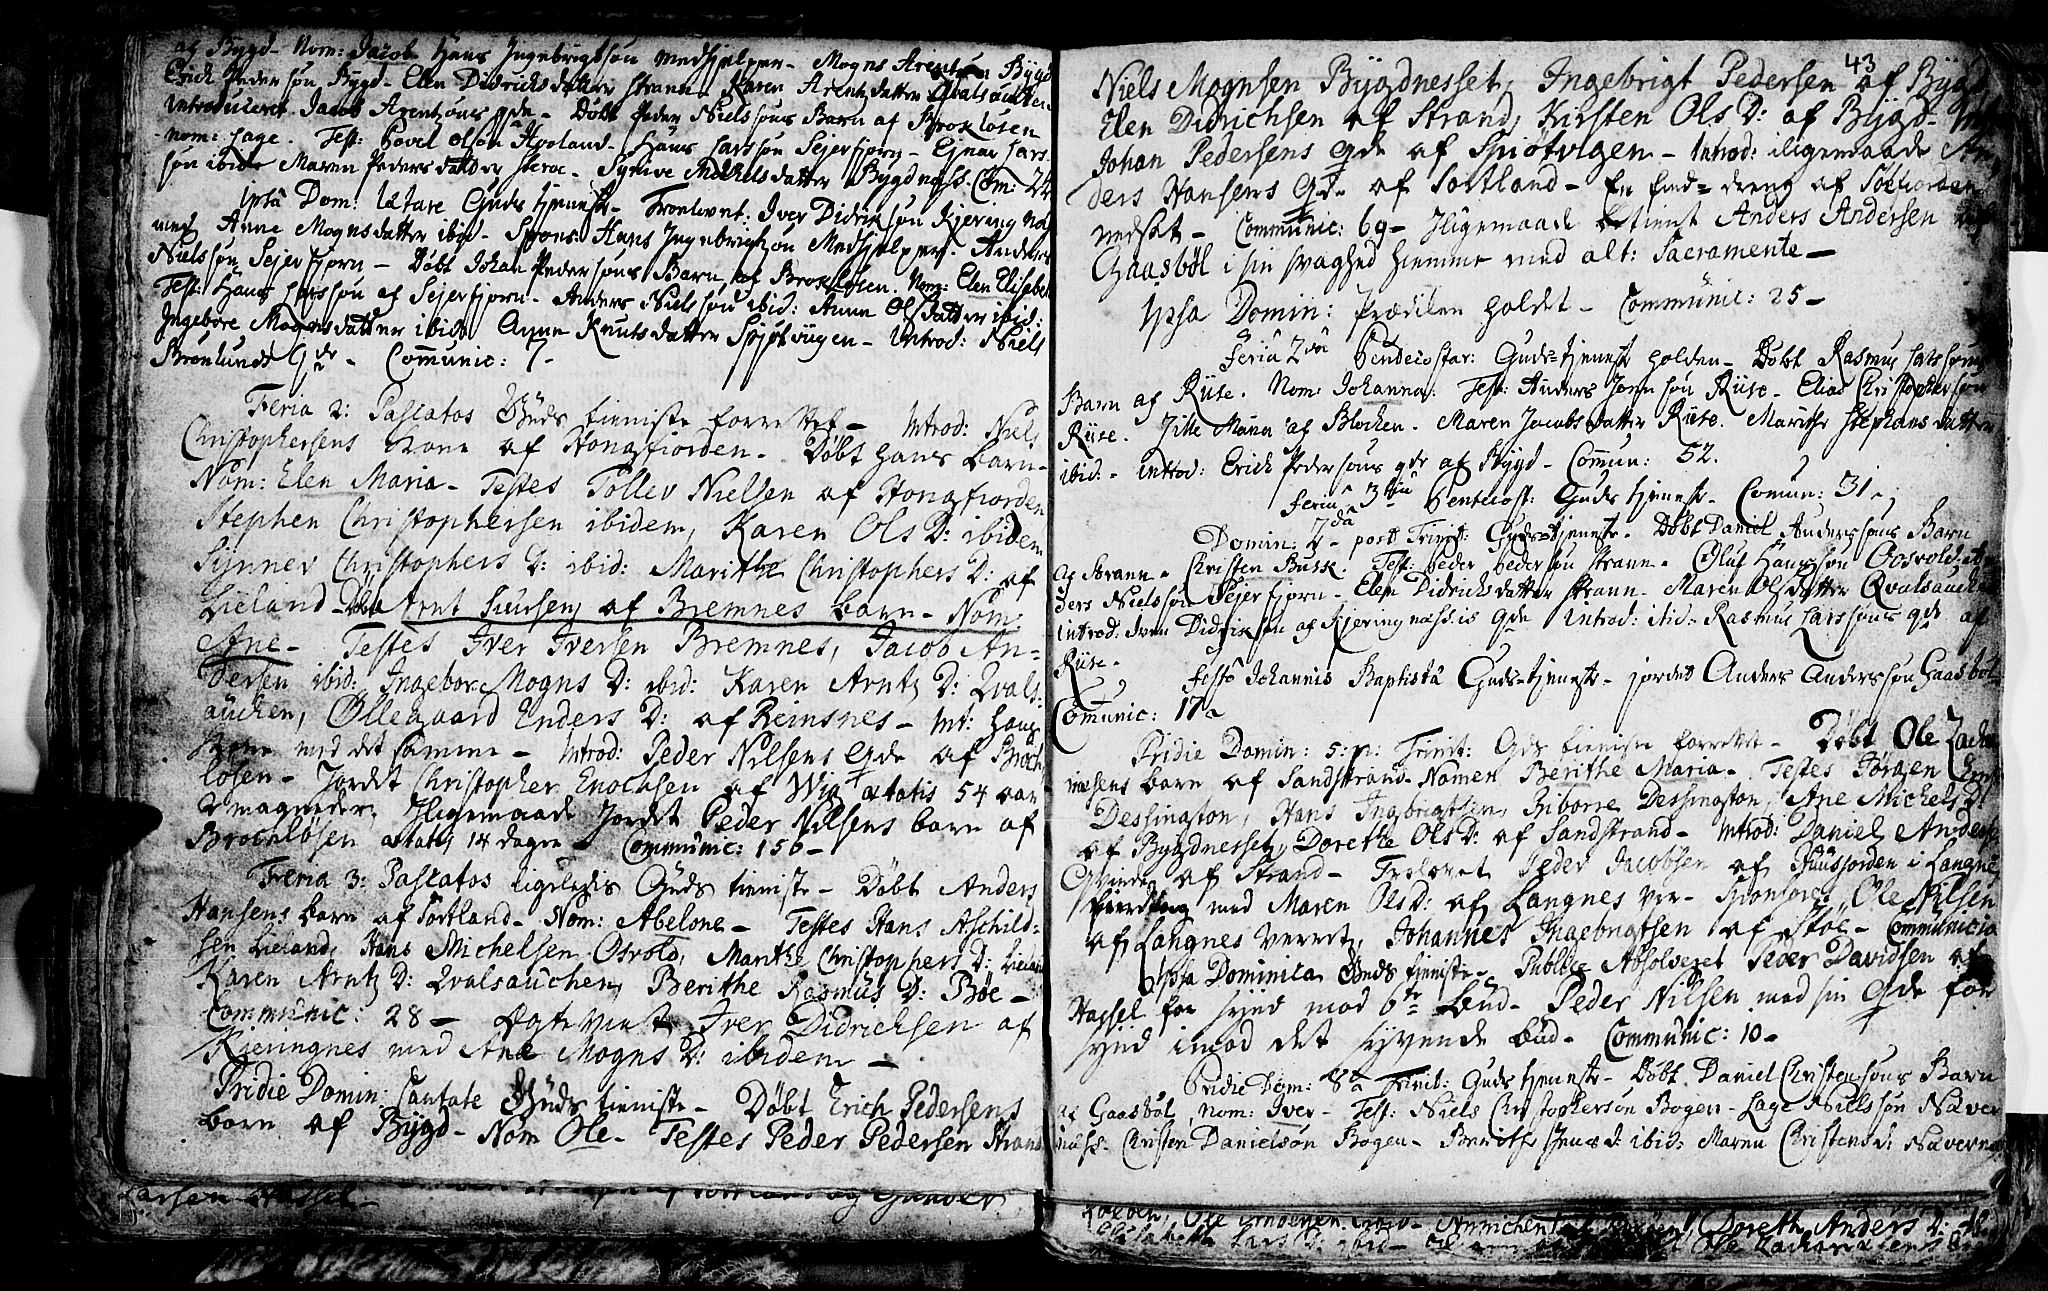 af Bygd - Nom: Jacob Hans Ingebrigtsøn Medhjelper - Mogns Arentsøn Bygd
Erich Pedersøn Bygd - Elen Didrichsdatter Strann - Karen Arentzdatter Qvalsaucken
Introduceret Jacob Arentzøns qde - Døbt Peder Nielsøns Barn af Brokløsen
nom: Lage. Test: Povel Olsøn Hovland - Hans Larssøn Sejerfjorn - Ejnar Lars-
søn ibid Maren Pedersdatter - Synive Michelsdatter Bygdnæss. Com: 24
Ipsâ Dom: Lætare Guds tjeneste - Troelovet: Iver Didriksøn Kjeringnæs
med Anne Mognsdatter ibid - Spons: Hans Ingebrigtsøn Medhjelper. Anders
Nielssøn Sejerfjorn - Døbt Johan Pedersøns Barn af Brokløsen. Nom: Elen Elisabeth
Test: Hans Larssøn af Sejerfjorn - Anders Nielssøn ibid: Anne Olsdatter ibid:
Ingebore Mognsdatter ibid: Anne Knutsdatter Spjøtvigen - Introd: Niels
Brønlunds Qde - Communic: 7 -
Feria 2: Pascatos Guds tieniste forrettet - Introd: Niels
Christophersens Kone af Hongfiorden - Døbt hans barn -
Nom: Elen Maria - Testes Tollev Nielsen af Hongfiorden
Stephen Christophersen ibidem, Karen Ols D: ibidem
Synnev Christophers D: ibid: Marithe Christophers D: af
Lieland - Døbt Arnt Siursens af Bremnes barn - Nom:
Ane - Testes Iver Iversen Bremnes, Jacob An-
dersen ibid: Ingebor Mogns D: ibid: Karen Arntz D: Qvals-
aucken, Øllegaard Enders D: af Reinsnes - Int: hans
Kone med det samme - Introd: Peder Nilsens Qde af Broch
løsen - Jordet Christopher Enochsen af Wiq ætatis 54 aar
2 magneder, Iligemaade Jordet Peder Nilsens barn af
Brochløsen ætatis 14 dagen - Communic: 156 -
Feria 3: Pascatos ligeledis Guds tieniste - Døbt Anders
Hansens barn af Sortland - Nom: Abelone - Testes Hans Aschild-
sen Lieland, Hans Michelsen Osvold, Marithe Christophers D: Lieland
Karen Arntz D: Qvalsauchen, Berithe Rasmus D: Bøe -
Communic: 28 - Ægtevviet Iver Didrichsen af
Kieringnes med Ane Mogns D: ibidem -
Pridie Domin: Cantate Guds tieniste - Døbt Erich Pedersens
barn af Bygd - Nom Ole - Testes Peder Pedersen Strand
Larsen Hassel -
43
Niels Mognsen Bygdnesset, Ingebrigt Pedersen af Bygd
Elen Didrichsen af Strand, Kirsten Ols D: af Bygd -
Johan Pedersens Qde af Spiøtvigen - Introd: iligemaade An-
ders Hansens Qde af Sortland - En find-dreng af
nedsat - Communic: 69 - Iligemaade betient Anders Andersen af
Gaasbøl i sin svaghed hiemme med alt: Sacramente -
Ipsa Domin: Prædiken holdet - Communic: 25 -
Feriâ 2dâ Pendecostar: Guds-tjeneste holden - Døbt Rasmus Larssøns
Barn af Riise. Nom: Johanna. Test: Anders Jonsøn Riise - Elias Christophersøn
Riise. Jille Maria af Blocken. Maren Jacobsdatter Riise. Marithe Stephansdatter
ibid: - Introd: Erich Pedersøns qde af Bygd - Commun: 52.
Feriâ 3tiâ Pentecost: Guds tjeneste - Comun: 31 -
Domin: 2dâ post Trinit: Guds tjeneste. Døbt Daniel Anderssøns Barn
af Strann - Christen Busk. Test: Peder Pedersøn Strann - Oluf Hanssøn Oosvold - An-
ders Nielssøn Sejerfjorn - Elen Didrichsdatter Strann - Maren Olsdatter Qvalsaucken
introd: Iver Didriksøn af Kjeringnæss is Qde Introd: ibid: Rasmus Larssøns qde af
Riise -
Festô Johannis Baptistâ Guds-tjeneste - jordet Anders Anderssøn Gaasbøl
Comunic: 17 -
Pridie Domin: 5: p: Trinit: Gds tieniste forrettet - Døbt Ole Zacha-
riæsens barn af Sandstrand - Nomen Berithe Maria - Testes Jørgen
Dessington, Hans Ingbrigtsen, Riborre Dessington, Ane Michels D
af Bygdnesset, Dorethe Ols D: af Sandstrand - Introd: Daniel Anders:
Qvinde af Strand - Trolovet Peder Jacobsen af i Langne
med Maren Ols D: af Langnes ver - Sponsores Ole Nilsen
af Langnes verret, Johannes Ingebrigtsen af - Communicia
Ipsa Dominica Guds tjeniste - Publice Absolveret Peder Davidsen af
Hassel for synd mod 6te bud - Peder Nilsen med sin Qde for
synd imod det syvende bud - Communic: 10 -
Pridie Dom: 8â Trinit: Guds tjeneste - Døbt Daniel Christensøns Barn
af Gaasbøl, nom: Iver - Test: Niels Christophersøn Bogen - Lage Nielssøn Næver
næss. Christen Danielsøn Bogen - Berithe Jens D: ibid: Maren Christens D: Nævernæs
Ole ibid - Doreth Anders D:
Elisabeth Lars D: ibid - Ole Zachariæsens